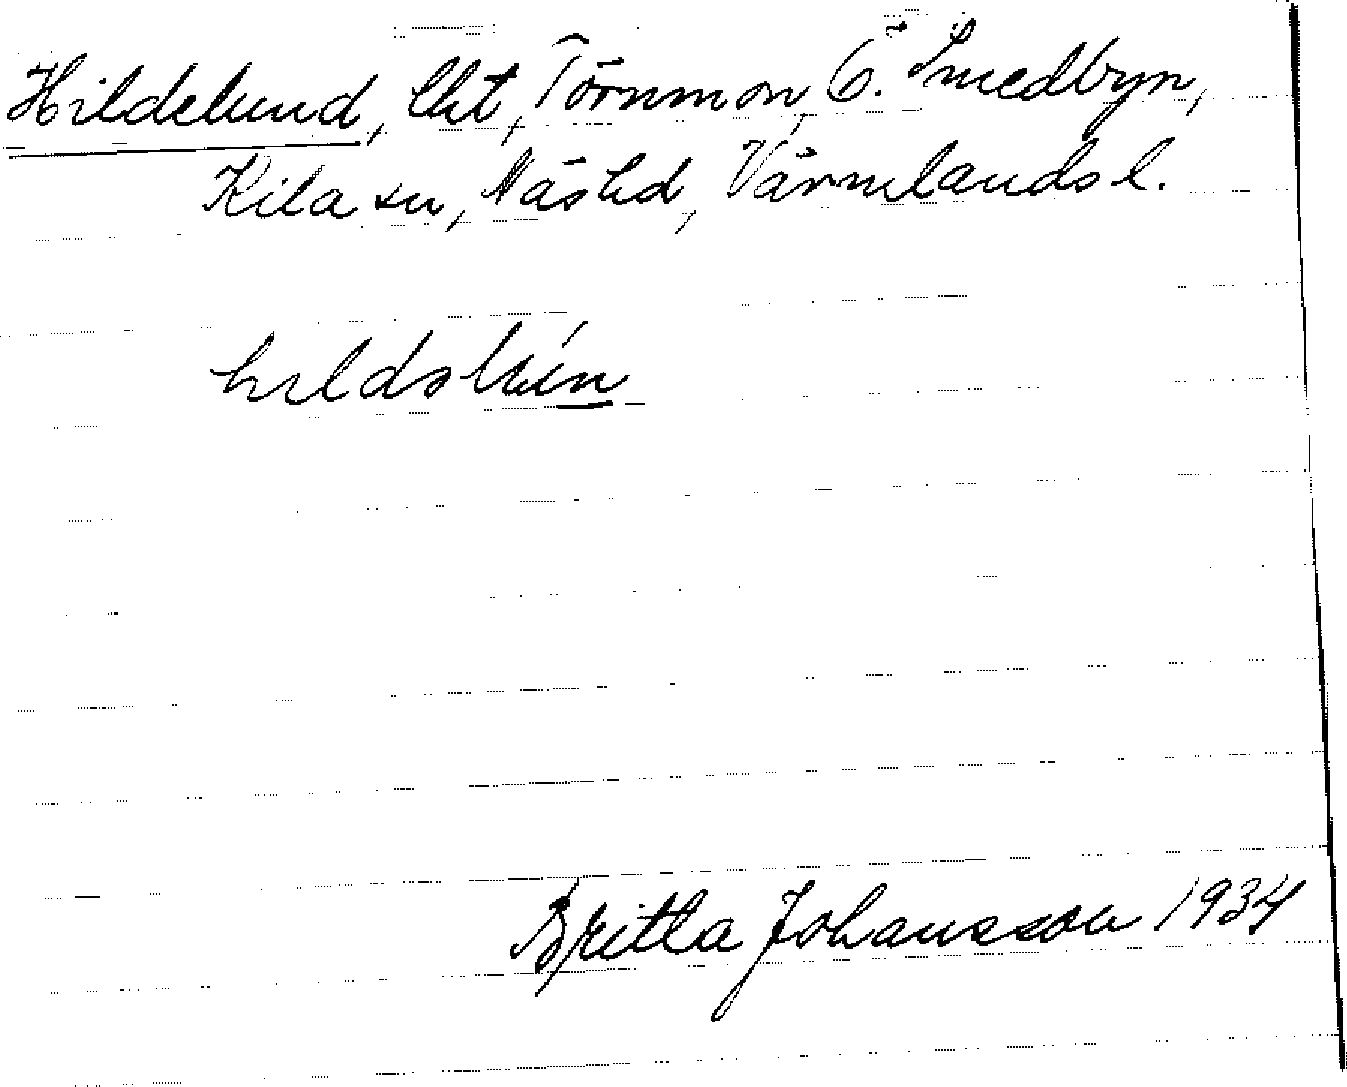 Hildelund, lht, Törnmon, Ö. Smedbyn,
Kila sn, Näs hd, Värmlands l.
Britta Johansson 1934